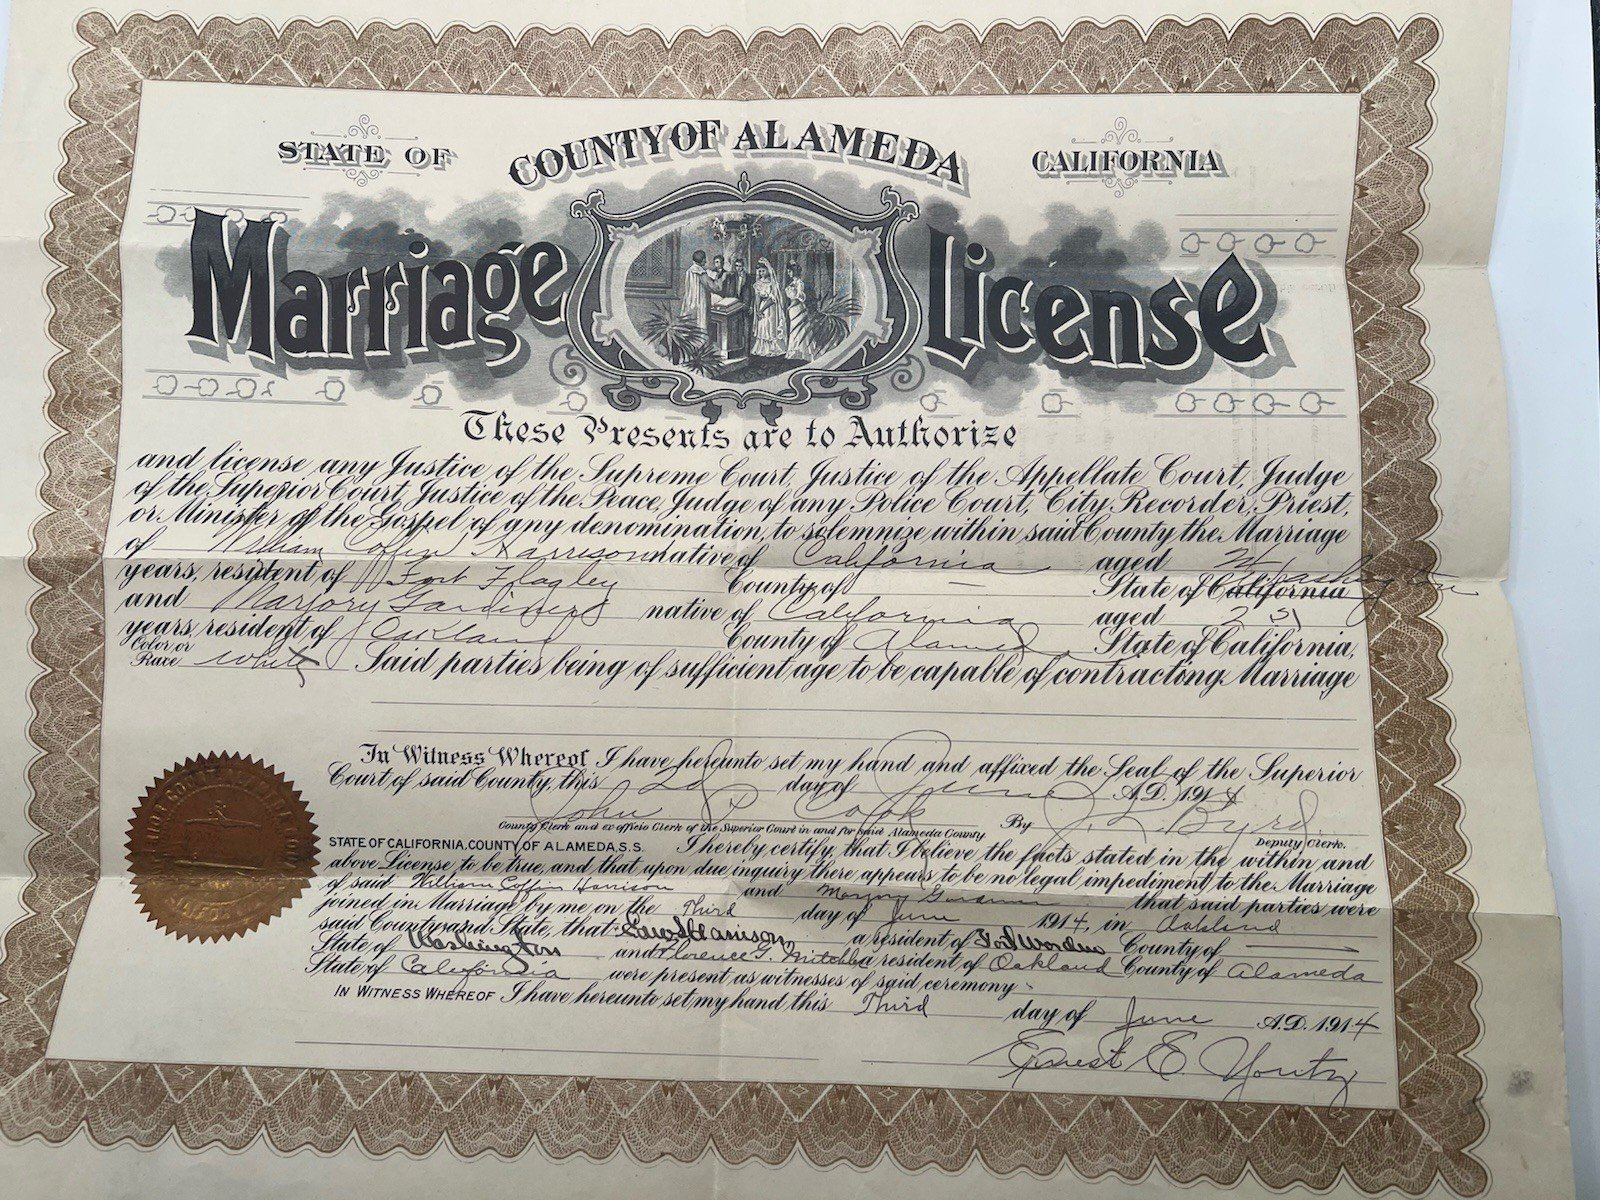 STATE OF COUNTY OF ALAMEDA CALIFORNIA
Marriage License
These Presents are to Authorize
and license any Justice of the Supreme Court, Justice of the Appellate Court, Judge
of the Superior Court, Justice of the Peace, Judge of any Police Court, City Recorder, Priest,
or Minister of the Gospel of any denomination, to solemnize within said County the Marriage
of William Coffin Harrison native of California aged
years, resident of Fort Flagley County of State of California Washington
and Marjory Gardiner native of California aged 25
years, resident of Oakland County of Alameda, State of California,
Color or
Race White Said parties being of sufficient age to be capable of contracting Marriage
In Witness Whereof I have hereunto set my hand and affixed the Seal of the Superior
Court of said County, this 2d day of June A.D. 1914
John P. Cook By J. L. Byrd
County Clerk and ex officio Clerk of the Superior Court in and for said Alameda County Deputy Clerk.
STATE OF CALIFORNIA, COUNTY OF ALAMEDA, S.S. I hereby certify, that I believe the facts stated in the within and
above License to be true, and that upon due inquiry there appears to be no legal impediment to the Marriage
of said William Coffin Harrison and Marjory Gardiner that said parties were
joined in Marriage by me on the Third day of June 1914, in Oakland
said County and State, that Harrison, a resident of Ft. Worden County of
State of Washington and Florence G. Mitchell a resident of Oakland County of Alameda
State of California were present as witnesses of said ceremony
IN WITNESS WHEREOF I have hereunto set my hand this Third day of June A.D. 1914
Ernest E. Youtz